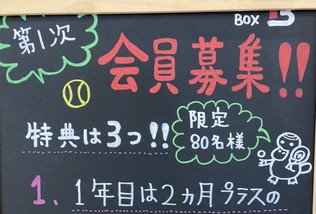 BOX
第1次
会員募集!!
特典は3つ!!
限定
80名様
1. 1年目は2ヵ月プラスの